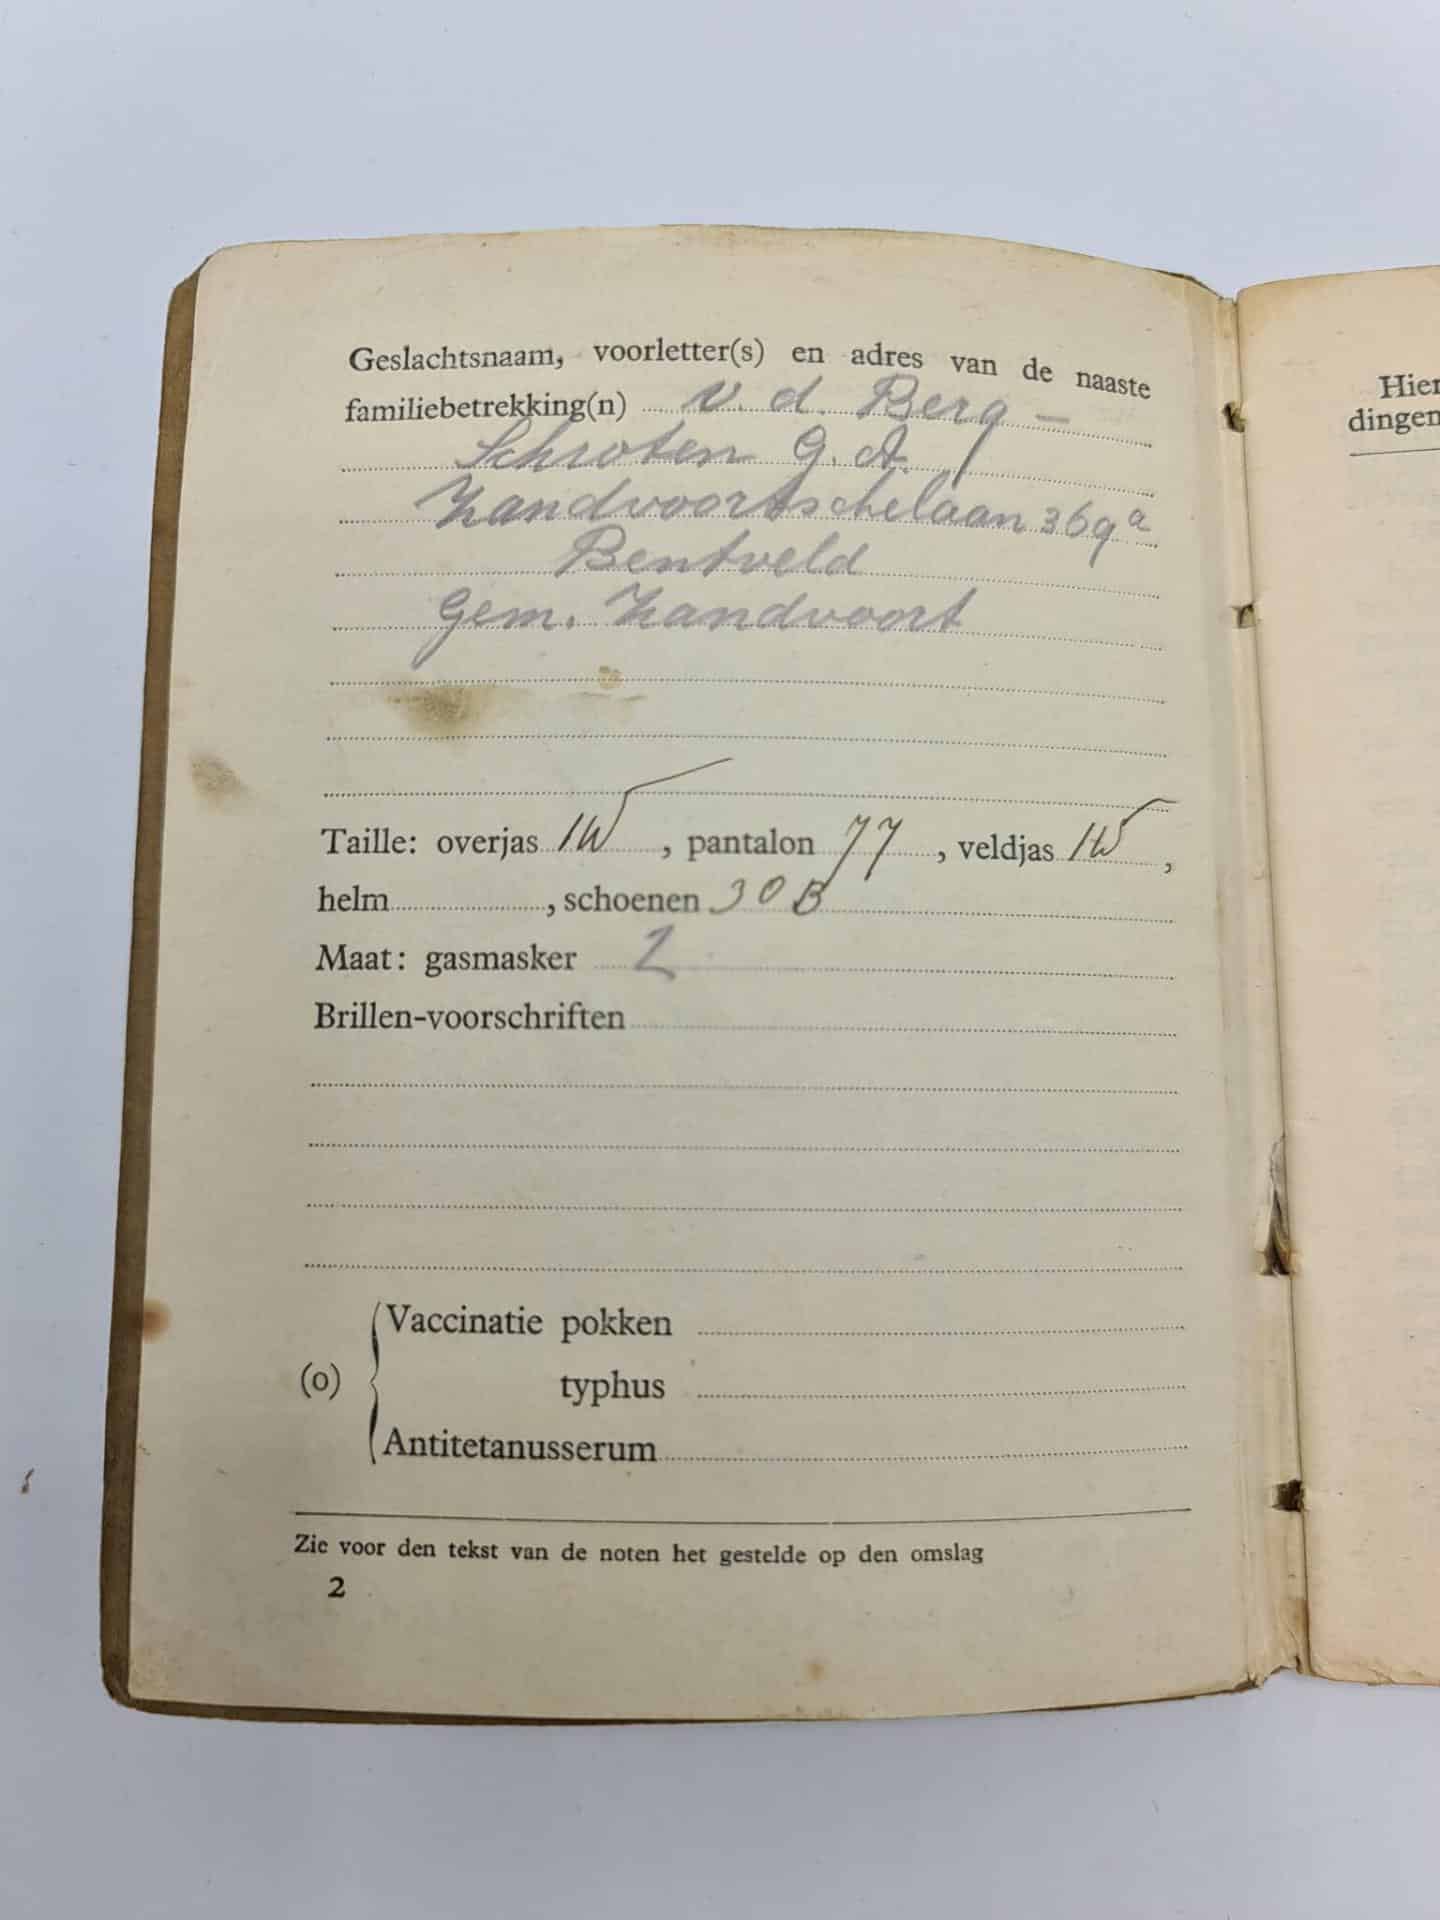 Geslachtsnaam, voorletter(s) en adres van de naaste
familiebetrekking(n) v. d. Berg –
Schroten G. A.
Zandvoortschelaan 369a
Bentveld
Gem. Zandvoort
Taille: overjas , pantalon 77, veldjas ,
helm , schoenen 30 B
Maat: gasmasker 2
Brillen-voorschriften
(o) Vaccinatie pokken
typhus
Antitetanusserum
Zie voor den tekst van de noten het gestelde op den omslag
2
Hier
dingen